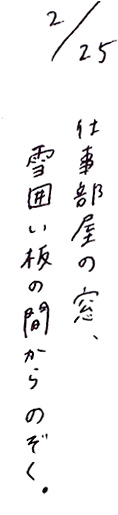 2/25
仕事部屋の窓、
雪囲い板の間からのぞく。